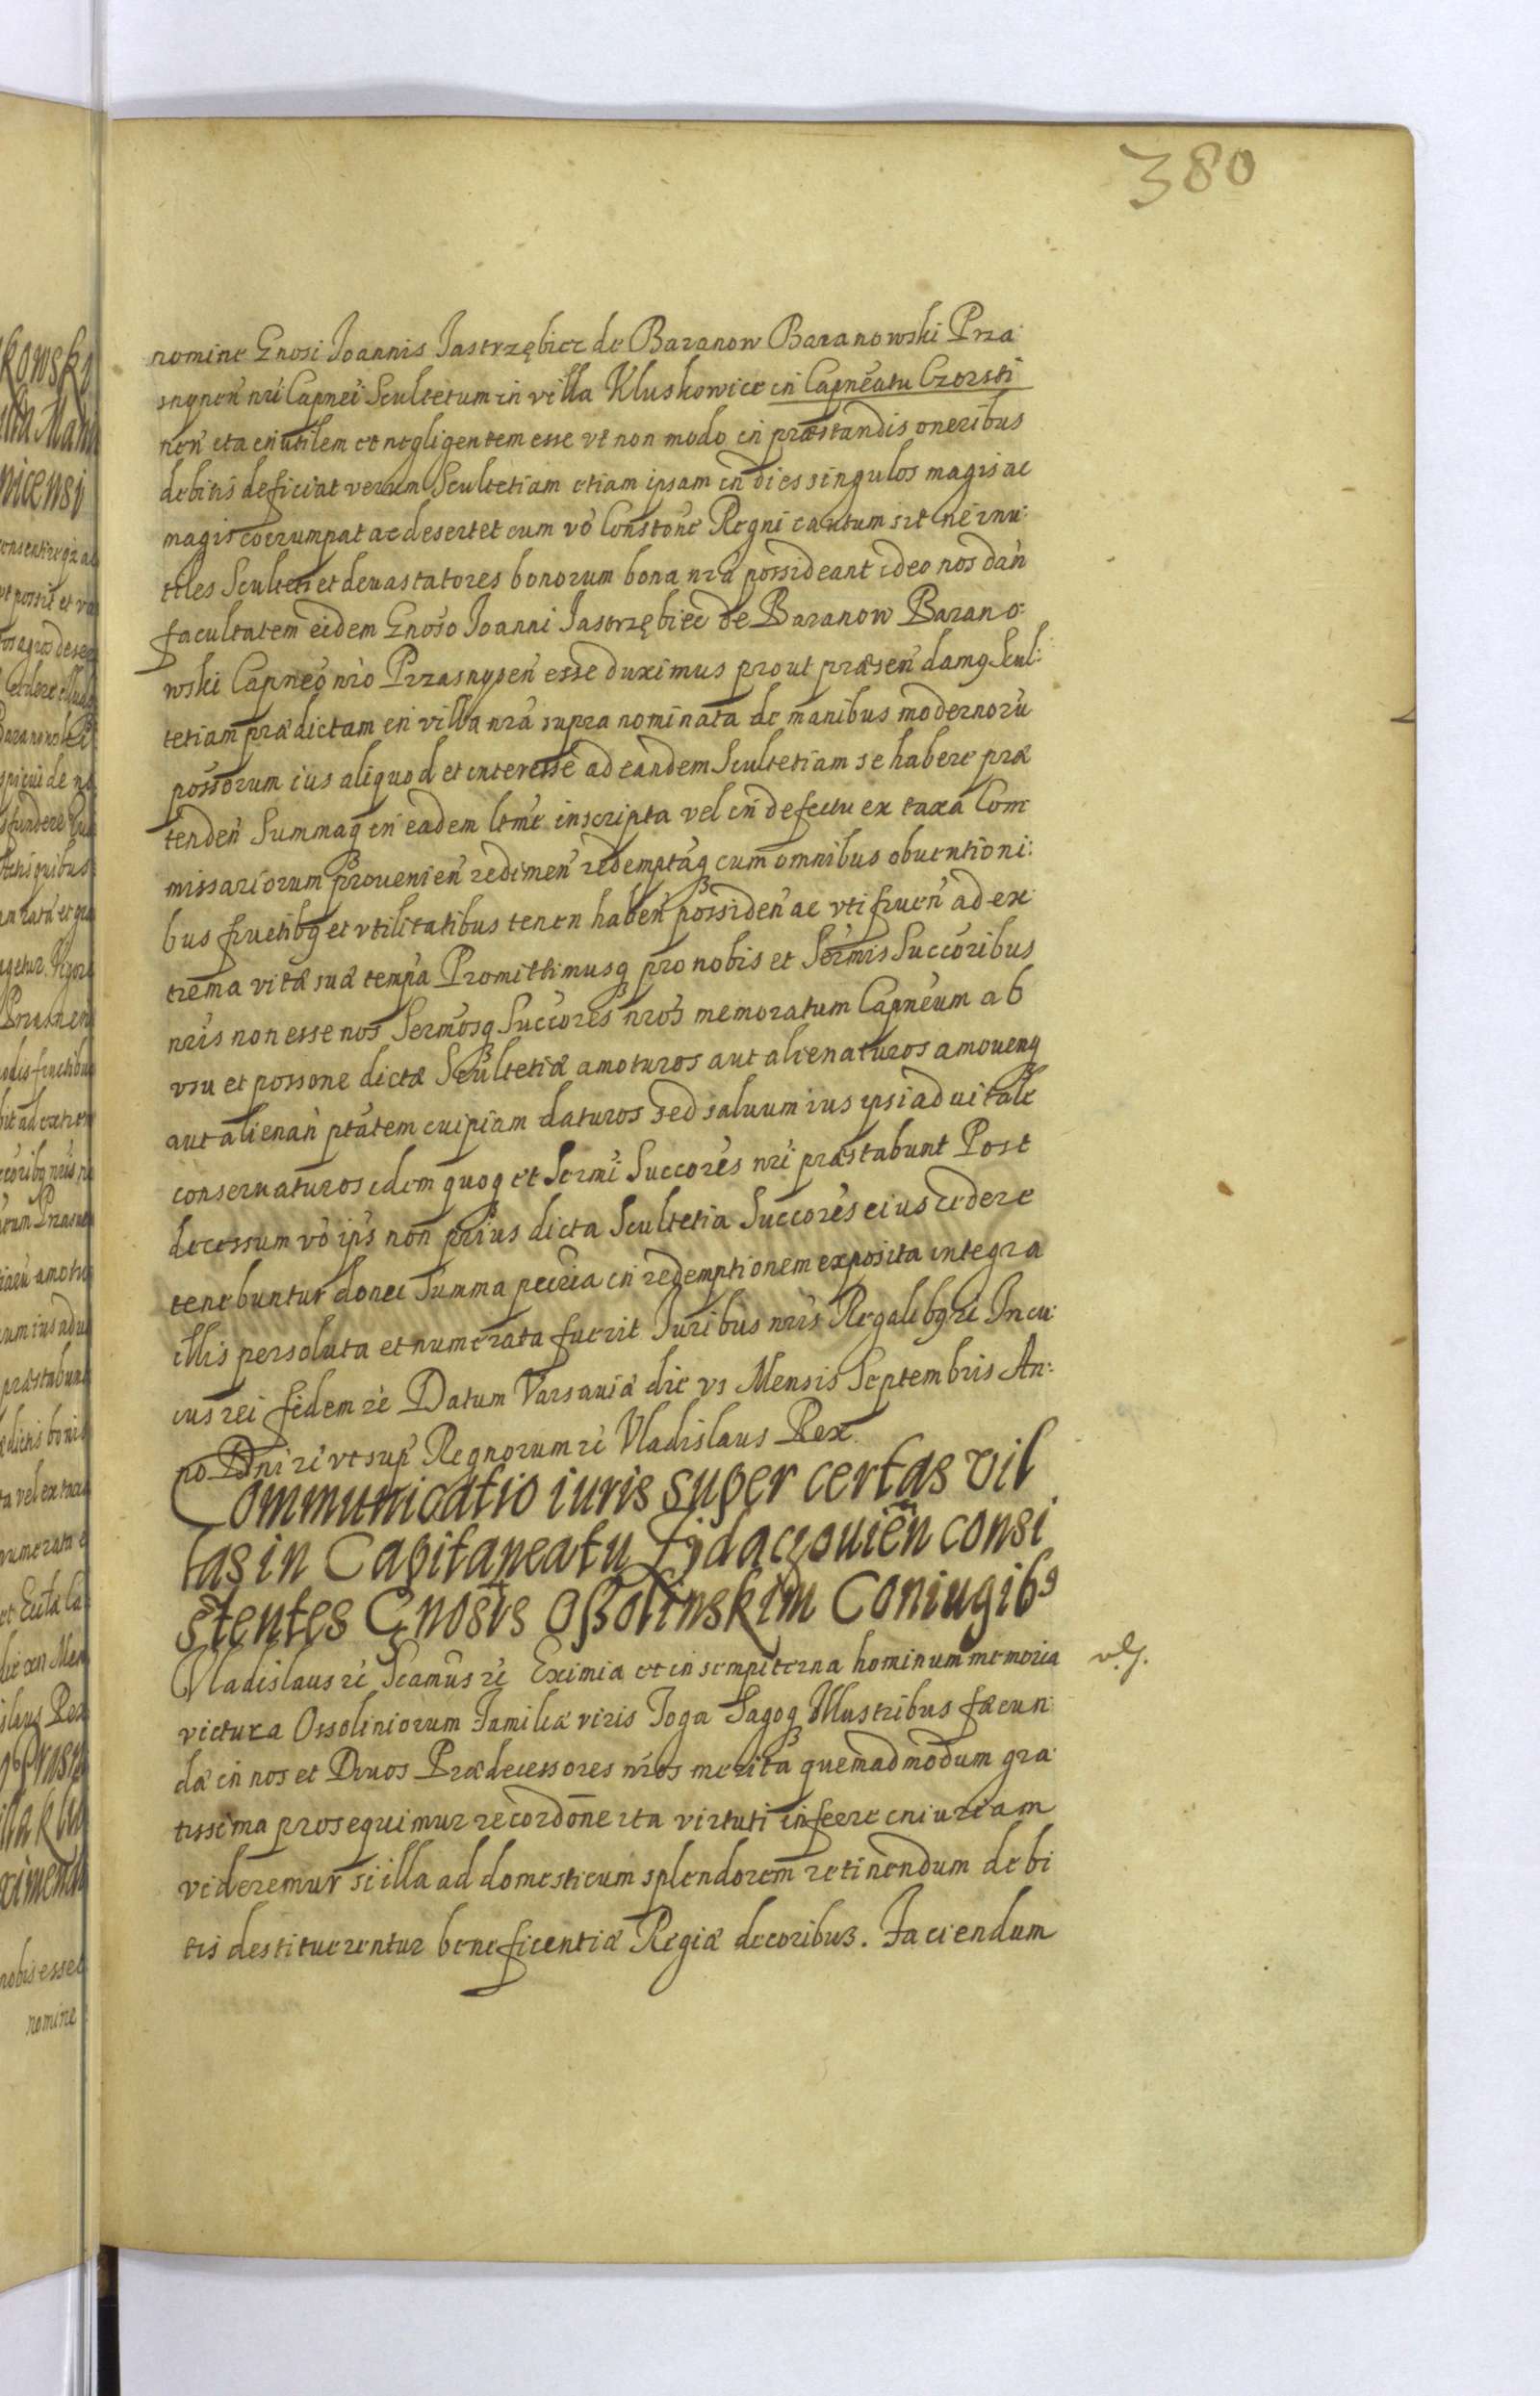 380
nomine Gnosi Joannis Jastrzębiec de Baranow Baranowski Prza:
snynen̄ nri Capnei Scultetum in villa Kluskowice in Capneatu Czorsti
non ita inutilem et negligentem esse vt non modo in præstandis oneribus
debitis deficiat verum Scultetiam etiam ipsam in dies singulos magis ac
magis corrumpat ac desertet cum vo Constone Regni cautum sit ne inu:
tiles Sculteti et deuastatores bonorum bona nra possideant ideo nos dan̄
facultatem eidem Gnoso Joanni Jastrzębiec de Baranow Barano:
wski Capneo nro Przasnysen̄ esse duximus prout præsen̄ damq Scul:
tetiam prædictam in villa nra supra nominata de manibus modernorū
possorum ius aliquod et interesse ad eandem Scultetiam se habere præ
tenden̄ Summaq in eadem ltme inscripta vel in defectu ex taxa Com
missariorum prouenien̄ redimen̄ redemptāq cum omnibus obuentioni:
bus fructibq et vtilitatibus tenen haben̄ possiden̄ ac vti fruen̄ ad ex:
trema vitæ suæ tempa Promittimusq pro nobis et Sermis Succoribus
nris non esse nos Sermosq Succores nros memoratum Capneum ab
vsu et possone dictæ Scultetiæ amoturos aut alienaturos amouenq
aut alienan̄ ptatem cuipiam daturos sed saluum ius ipsi aduitale
conseruaturos idem quoq et Sermi Succores nri præstabunt Post
decessum vo ips non prius dicta Scultetia Succores eius cedere
tenebuntur donec Summa pecria in redemptionem exposita integra
illis persoluta et numerata fuerit Juribus nris Regalibq rc In cu:
ius rei fidem rc Datum Varsauiæ die vs Mensis Septembris An:
no Dni rc vt sup Regnorum rc Vladislaus Rex
Communicatio iuris super certas vil
las in Capitaneatu Zydaczouien̄ consi
stentes Gnosis Oßolinskim Coniugibq
Vladislaus rc Seamus rc Eximia et in sempiterna hominum memoria
victura Ossoliniorum Familiæ viris Toga Sagoq Illustribus fæcun:
dæ in nos et Diuos Prædecessores nros merita quemadmodum gra:
tissima prosequimur recordone ita virtuti inferre iniuriam
videremur si illa ad domesticum splendorem retinendum debi
tis destituerentur beneficentiæ Regiæ decoribus. Faciendum